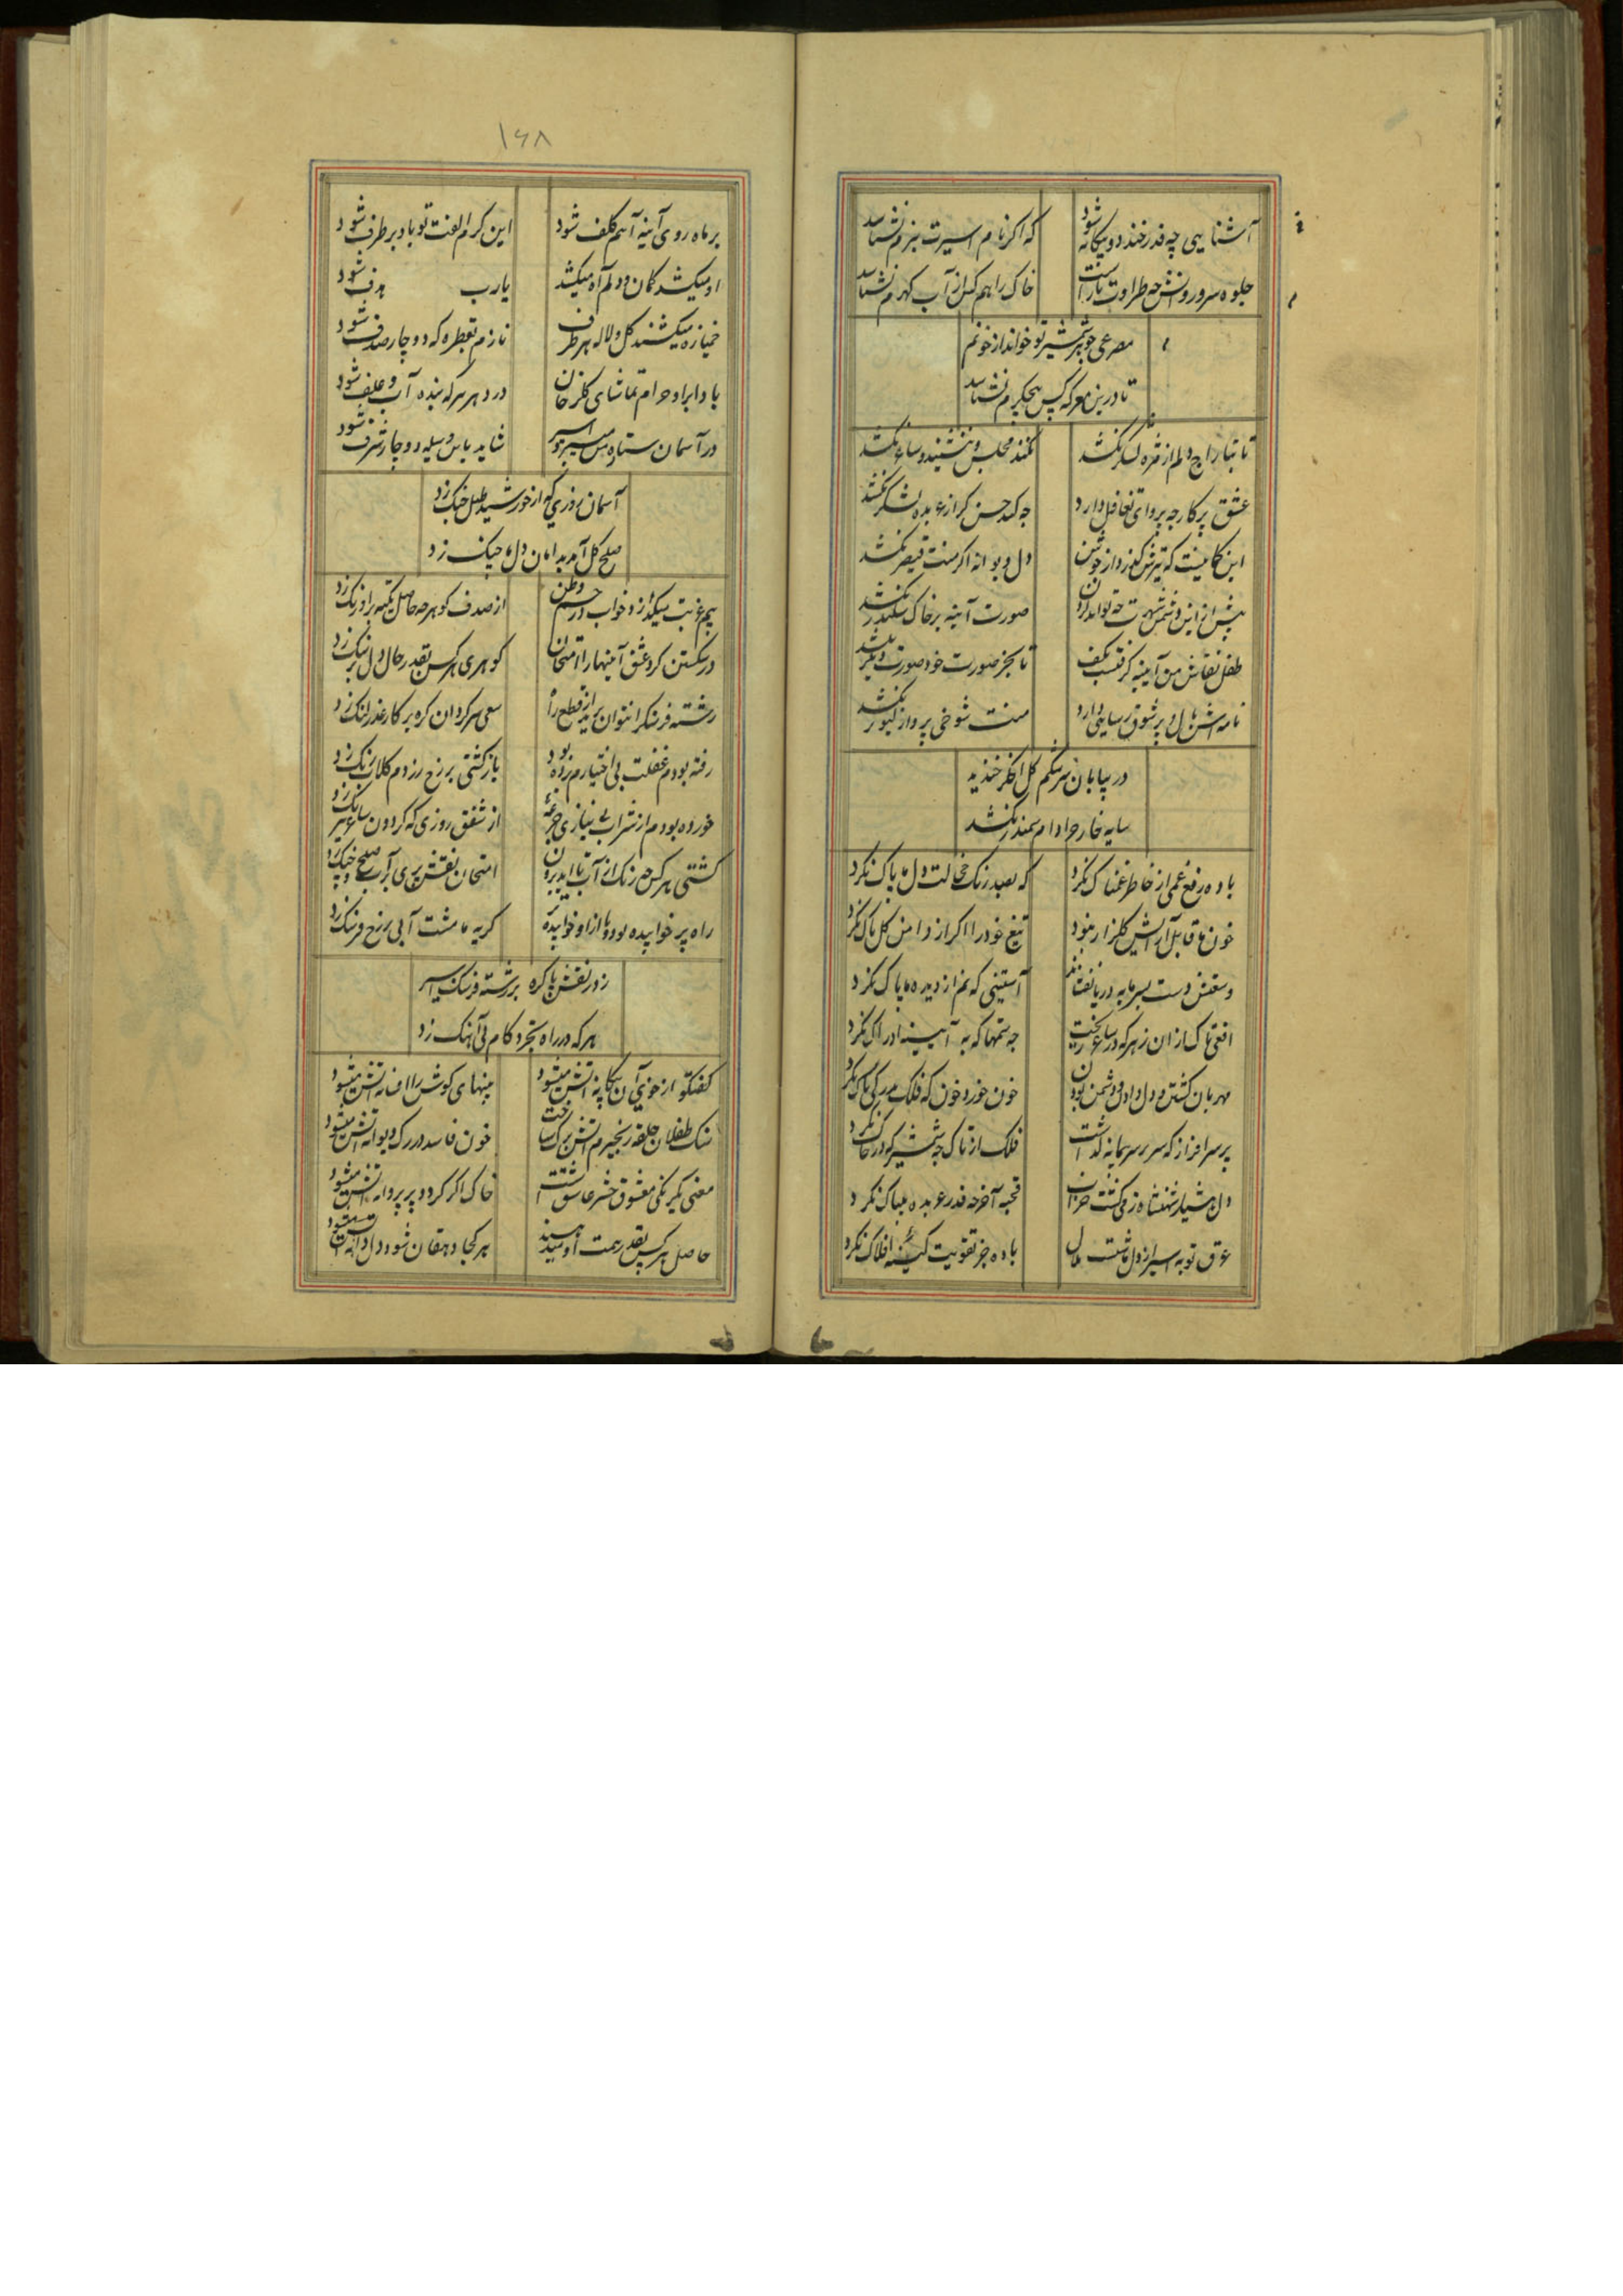 آشنایی چه قدر خندد و بیگانه شود که اگر نام اسیرت نبرم نشناسد
جلوه سرو روانش چه طراوت بار است خاک را هم کس از آب گهرم نشناسد
مصرعی جوهر شمشیر تو خواند از خونم
تا درین معرکه کس بیجگرم نشناسد
تا بتاراج دلم از مژه لشکر نکشد نکند مجلس و ننشیند و ساغر نکشد
عشق پرکار چه پروای تغافل دارد چه کند حسن گر از عربده لشکر نکشد
این کمانیست که تیرش گذرد از دل و دیوانه اگر منت قیصر نکشد
پیش ازین دشمن شهرت چه تواند صورت آینه بر خاک سکندر نکشد
طفل نقاش من آیینه گرفتست بکف تا بجز صورت خود صورت دیگر نکشد
نامه اش بال و پر شوق رسایی دارد منت شوخی پرواز کبوتر نکشد
در بیابان سرشکم گل اخگر خندید
سایه خار مرا دام سمندر نکشد
باده رفع غمی از خاطر غمناک نکرد که بصد رنگ خجالت دل ما پاک نکرد
خون ما قابل آرایش گلزار نبود تیغ خود را اگر از دامن گل پاک نکرد
وسعتش دست بسرمایه دریا نفشاند آستینی که نم از دیده ما پاک نکرد
افعی تاک از آن زهر که در ساغر ریخت چه ستمها که به آیینه ادراک نکرد
مهربان گشتن و دل دادن و دشمن بودن خون خورد خون که فلک
پر سرافراز که سر بر سر پیمانه گذاشت فلک از تاک چه شمشیر که در خاک نکرد
دل هشیار شهنشاه ز می گشت خراب قحبه آخر چه قدر عربده بیباک نکرد
عرق توبه اسیر از دل ما شست ملال باده جز تقویت کینه افلاک نکرد
۱۶۸
بر ماه روی آینه آهم کلف شود این گرم الفت تو باد بر طرف شود
او میکشد کمان و دلم آه میکشد یارب هدف شود
خمیازه میکشند گل و لاله هر طرف نازم بقطره که دوچار صدف شود
بادا بر او حرام تماشای گلرخان در دهر هر که بنده آب و علف شود
در آسمان ستاره اسیر شاید باین وسیله دوچار شرف شود
آسمان روزی که از خورشید طبل جنگ زد
صلح کل آمد بدامان دل ما چنگ زد
بیم غربت میگدازد خواب در چشم وطن از صدف گوهر چه حاصل تکیه بر اورنگ زد
در شکستن کرد عشق آیینها را امتحان گوهری هر کس بقدر حال دل بر سنگ زد
رشته فرسنگ را نتوان بریدن قطع راه سعی سرگردان گره بر کار عذر لنگ زد
رفته بودم غفلت بی اختیارم برده بود بازگشتی بر رخ رزدم گلاب رنگ زد
خورده بودم از شراب بی نیازی جرعه از شفق روزی که گردون ساغر نیرنگ زد
کشتی هر کس چه رنگ از آب تا آید برون امتحان نقش پری بر آب صلح و جنگ زد
راه پر خوابیده بود و پا از او خوابیده گریه ما مشت آبی بر رخ فرسنگ زد
زد ز نقش پا گره بر رشته فرسنگ اسیر
هر که در راه تجرد گام بی آهنگ زد
گفتگو از خوی آن بیگانه آتش میشود پنبهای گوش را افسانه آتش میشود
سنگ طفلان حلقه زنجیرم آتش خون فاسد در رگ دیوانه آتش میشود
معنی یکرنگی معشوق حشر عاشق است خاک اگر گردد پر پروانه آتش میشود
حاصل هر کس بقدر همت او میدهند هر کجا دهقان شود دل دانه آتش میشود